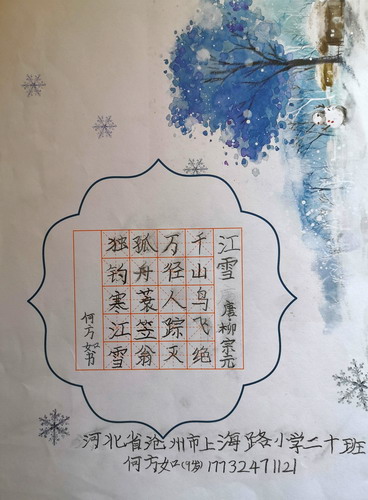 江雪 唐柳宗元
千山鸟飞绝
万径人踪灭
孤舟蓑笠翁
独钓寒江雪
何方如书
河北省沧州市上海路小学二十班
何方如(9岁)17732471121